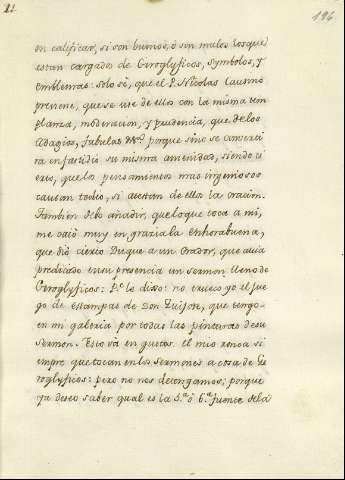 11
196
en calificar, si son buenos, ò son malos los que
estan cargados de Geroglyficos, Symbolos, y
emblemas: solo sè, que el P. Nicolas Causino
previene, que se use de ellos con la misma tem
planza, moderacion, y prudencia, que de los
Adagios, Fabulas &c. porque sino se converti
rà en fastidio su misma amenidad, siendo ci
erto, que los pensamientos mas ingeniosos
causan tedio, si de ellos la oracion.
Tambien debo añadir, que lo que toca a mi,
me caiò muy en gracia la enhorabuena,
que diò cierto Duque a un Orador, que avia
predicado en su presencia un sermon lleno de
Geroglyficos: P.e le dixo: no trueco yo el jue
go de estampas de Don Quijote, que tengo
en mi galeria por todas las pinturas de su
sermon. Esto và en gustos. El mio renca si
empre que tocan en los sermones a cosa de Ge
roglyficos: pero no nos detengamos; porque
ya deseo saber qual es la 5.a ò 6.a fuente de la